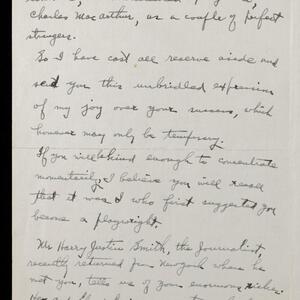 Charles MacArthur, as a couple of perfect
strangers.
So I have cast all reserve aside and
send you this unbridled expression
of my joy over your success, which
however may only be temporary.
If you will be kind enough to concentrate
momentarily, I believe you will recall
that it was I who first suggested you
become a playwright.
Mr Harry Justin Smith, the Journalist,
recently returned from New York where he
met you, tells us of your enormous riches.